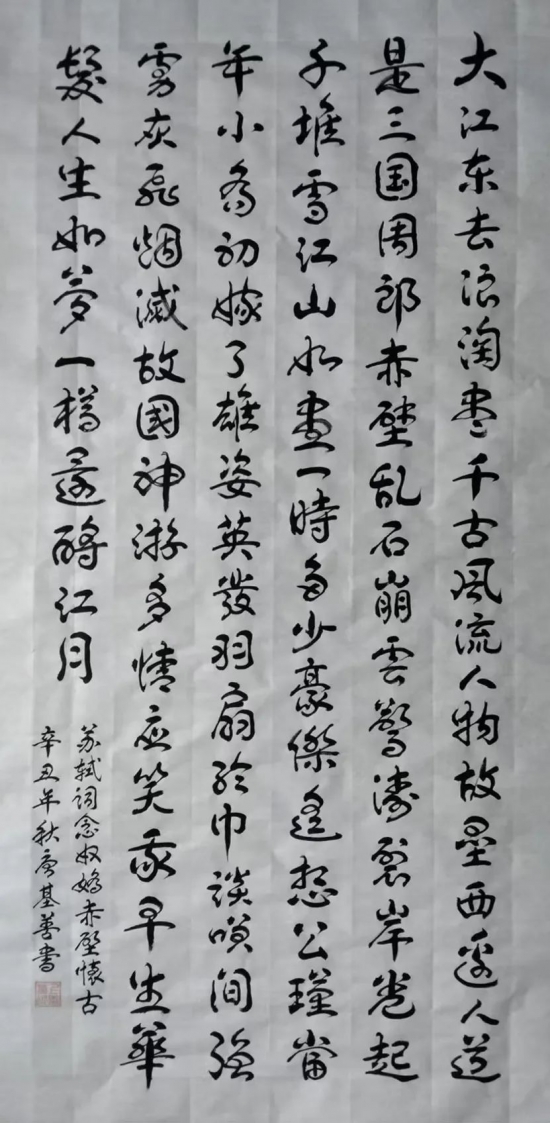 大江东去浪淘尽千古风流人物故垒西边人道
是三国周郎赤壁乱石崩雲驚涛裂岸卷起
千堆雪江山如畫一時多少豪傑遙想公瑾當
年小喬初嫁了雄姿英發羽扇纶巾談笑间强
虏灰飛烟滅故國神游多情应笑我早生華
髮人生如夢一樽還酹江月
苏轼词念奴嬌赤壁懷古
辛丑年秋唐基善書